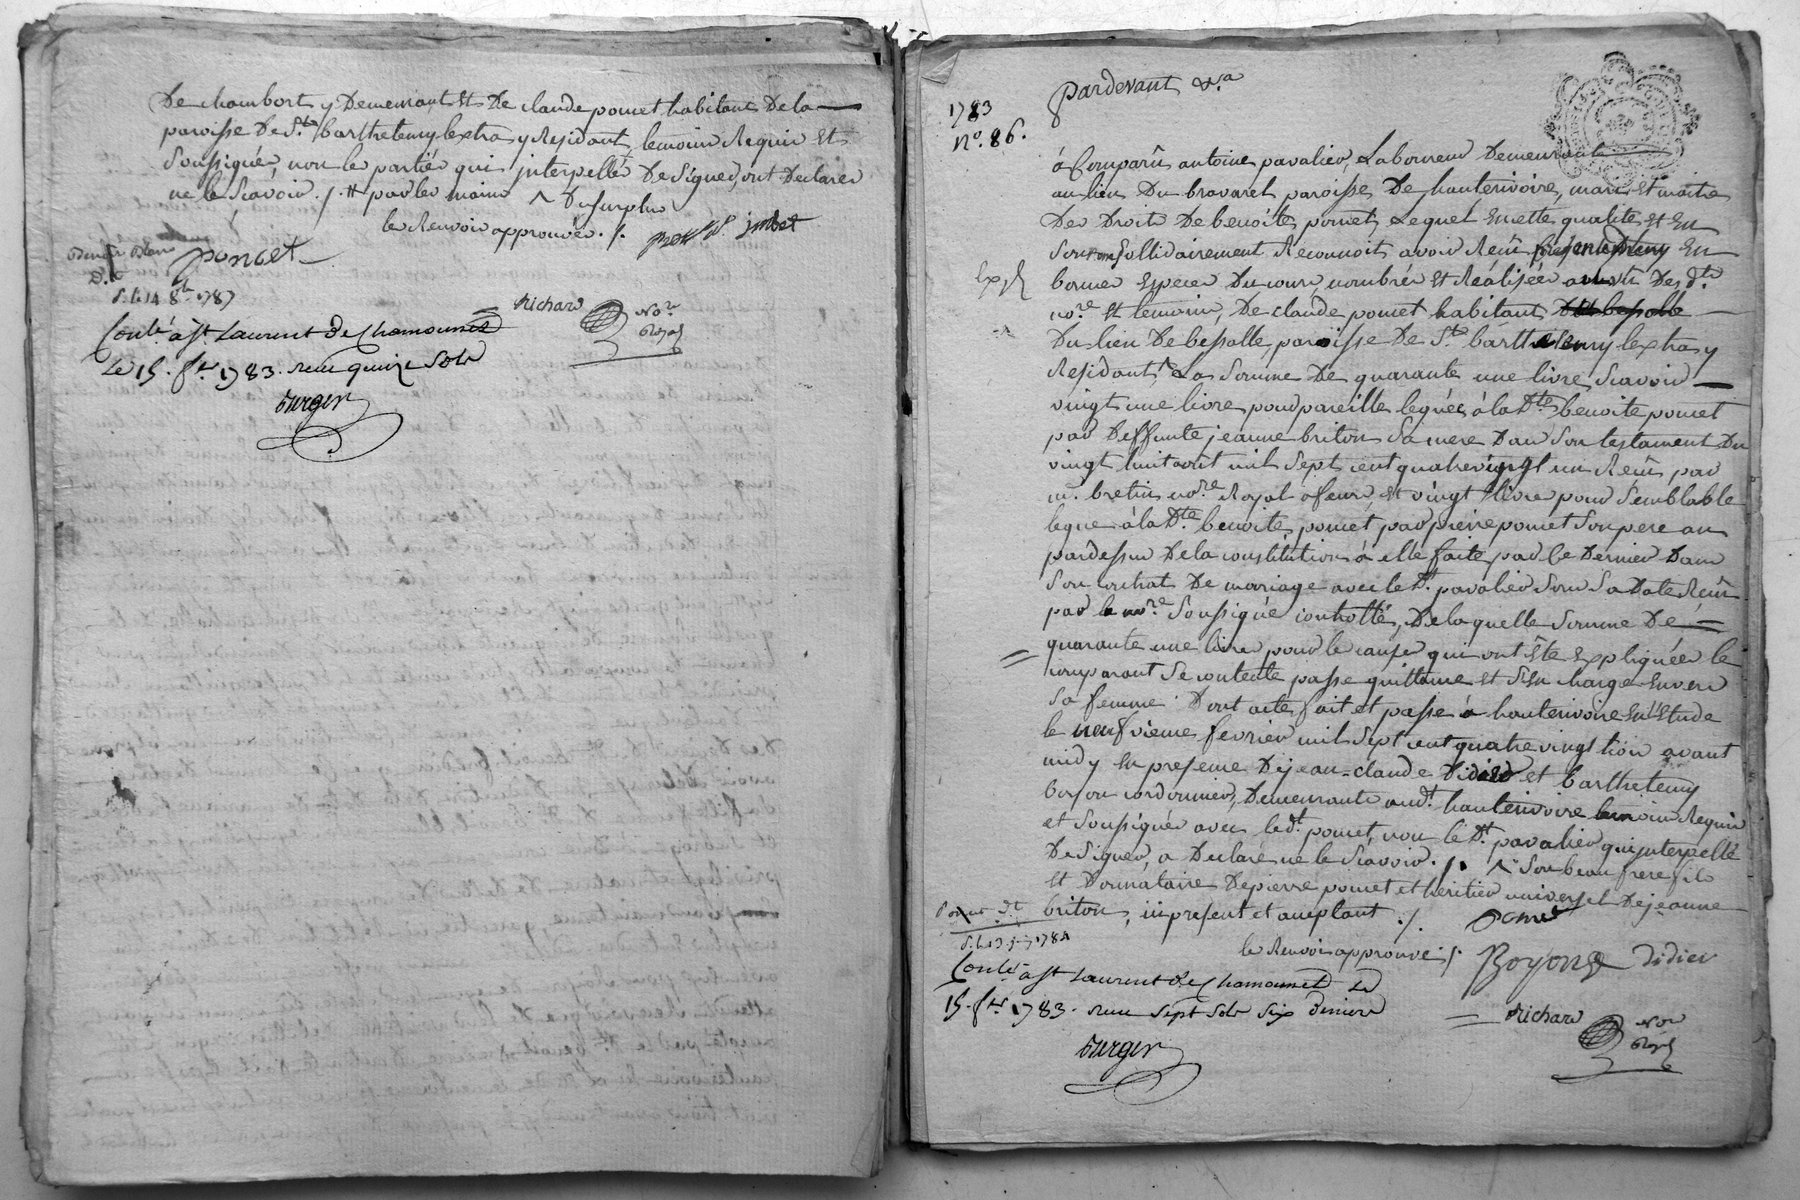 De chambort y Demeurant et De claude pomet habitant De la
paroisse De St barthelemy lextra y Residant temoins Requis et
soussignés, non les parties qui interpellé De signer, ont Declarer
ne le scavoir ./. # par les mains ^ Du surplus
le Renvoi approuvés ./.
poncet
D.
S. le 14 8bre 1787
Richard
No.re
Royal
Conlé à St Laurent De Chamousset
Le 15. fer 1783. reçu quinze sols
Burger
1783
No. 86.
Pardevant &.a
à Comparû antoine pavalier, Laboureur Demeurant
au lieu Du bravaret paroisse De hauterivoire, mari et maitre
Des Droits De benoite pomet, Lequel en cette qualité et en
son nom sollidairement Reconnoit avoir Reçû présentement en
bonnes especes Du cours, nombrées et Réalisées Des dts
no.re et temoins, De claude pomet habitant
Du lieu De bessolle, paroisse De St barthelemy lextra y
Residant, ^ La somme De quarante une livre, scavoir
vingt une livre pour pareille leguée à la Dte benoite pomet
par Deffunte jeanne briton sa mere Dans son testament Du
vingt huit aout mil sept cent quatrevingt un Reçû par
me. bretin no.re Royal a feurs, et vingt livre pour semblable
legue à la Dte. benoite pomet, par pierre pomet son pere au
pardessus De la constitution à elle faite par ce Dernier Dans
son contrat De mariage avec le Dt. pavalier sous sa Date Reçû
par le no.re soussigné controllé, De laquelle somme De
quarante une livre pour les causes qui ont êté expliquées le
comparant se contente passe quittance et s'en charge envers
sa femme. Dont acte fait et passé à hauterivoire en l'Etude
le neufvieme fevrier mil sept cent quatre vingt trois avant
midy en presence De jean-claude Didier et barthelemy
boyon cordonnier, Demeurants aud. hauterivoire temoins Requis
et soussignés avec led. pomet, non le Dt. pavalier qui interpellé
De signer, a Declaré ne le scavoir. /. ^ son beau frere fils
et Donnataire De pierre pomet et heritier universel De jeanne
briton, ici present et acceptant ./.
pomet
le Renvoi approuvé ./.
Boyon
didier
Conlé à St Laurent De Chamousset Le
15. fer. 1783. reçu sept sols six deniers
Richard
No.re
Royal
Burger